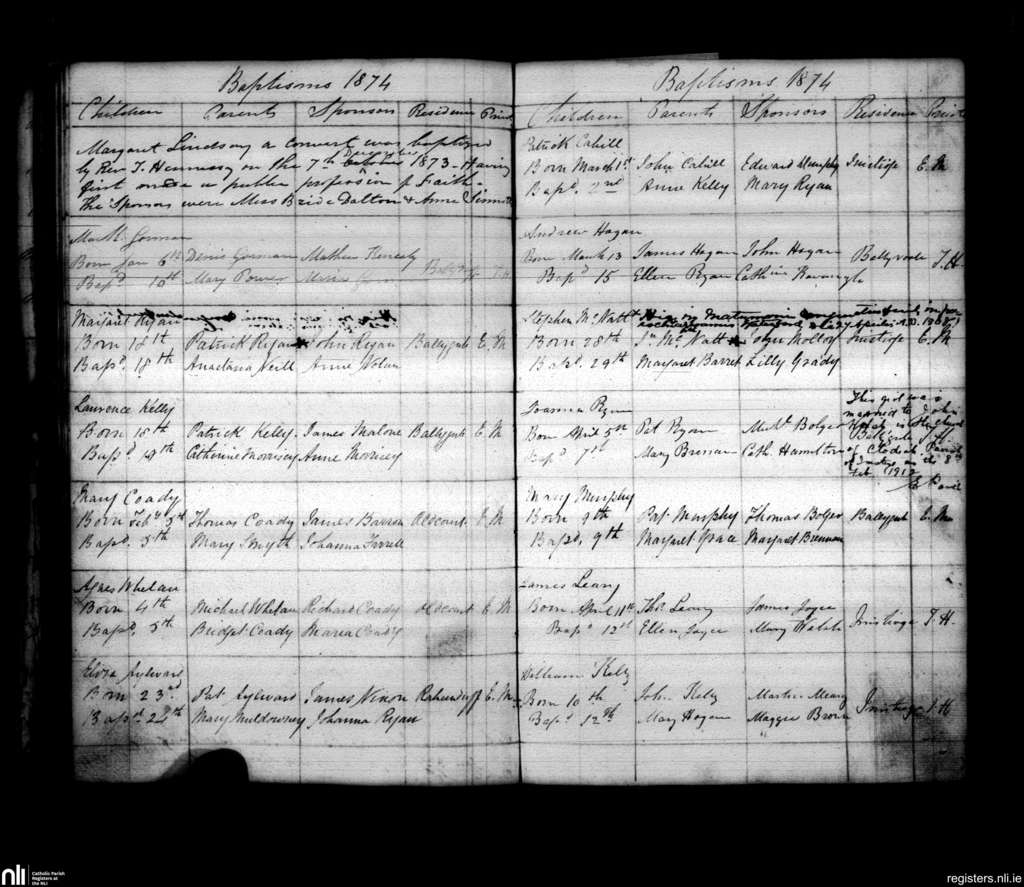 Baptisms 1874
Children Parents Sponsors Residence Priest
Margaret Lindsay a convert was baptized
by Rev. T. Hennessy on the 7th December 1873 - Having
first made a public profession of Faith -
The Sponsors were Miss Bride Dalton & Anne Sinnott
Gorman
Born Jan 6th Denis Gorman Mathew Kenealy
Bapd 10th Mary Power T.H
Margaret Ryan
Born 18th Patrick Ryan John Ryan Ballygub E. M
Bapd 18th Anastasia Neill Anne Nolan
Laurence Kelly
Born 18th Patrick Kelly James Malone Ballygub E M
Bapd 19th Catherine Morrisey Anne Morrisey
Mary Coady
Born Feby 3rd Thomas Coady James Barron Oldcourt E M
Bapd. 5th Mary Smyth Johanna Farrell
Agnes Whelan
Born 4th Michael Whelan Richard Coady Oldcourt E M
Bapd. 5th Bridget Coady Maria Coady
Eliza Aylward
Born 23rd Pat Aylward James Nixon E. M
Bapd. 24th Mary Muldowney Johanna Ryan
Baptisms 1874
Children Parents Sponsors Residence Priest
Patrick Cahill
Born March 1st John Cahill Edward Murphy Inistioge E. M
Bapd. 2nd Anne Kelly Mary Ryan
Andrew Hagan
Born March 13 James Hagan John Hagan T.H
Bapd 15 Ellen Ryan Cathrine Kavanagh
Stephen McNatt
Born 28th Jn McNatt John Molloy Inistioge E. M
Bapd. 29th Margaret Barret Lilly Grady
Joanna Ryan
Born April 5th Pat Ryan Michl Bolger
Bapd 7th Mary Brennan Cath. Hamilton
This girl was
married to John
Parish
on the 8th
Feb. 1912
Mary Murphy
Born 9th Pat Murphy Thomas Bolger Ballygub E. M
Bapd. 9th Margaret Grace Margaret Brennan
James Leany
Born April 11th Thos Leany James Joyce Inistioge T. H.
Bapd 12th Ellen Joyce Mary Walsh
William Kelly
Born 10th John Kelly Martin Meany Inistioge T.H
Bapd 12th Mary Hogan Maggie Brown
nli Catholic Parish
Registers at
the NLI
registers.nli.ie